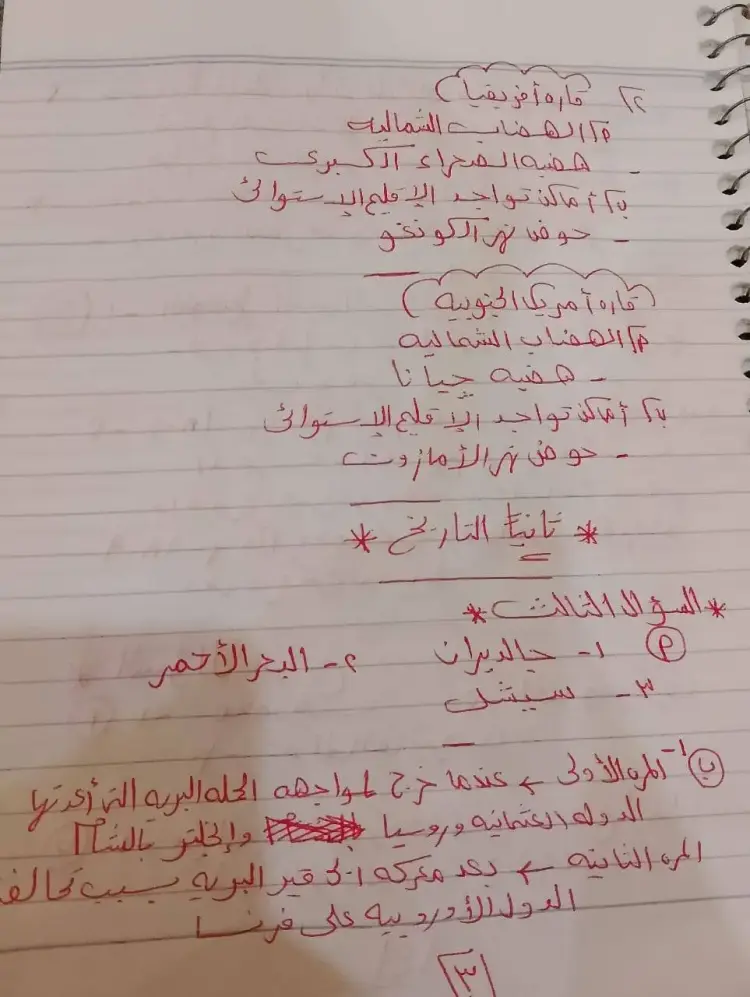 ٢) قاره أفريقيا
أ) الهضاب الشماليه
- هضبه الصحراء الكبرى
ب) أماكن تواجد الإقليم الإستوائى
- حوض نهر الكونغو
قاره أمريكا الجنوبيه
أ) الهضاب الشماليه
- هضبه جيانا
ب) أماكن تواجد الإقليم الإستوائى
- حوض نهر الأمازون
* ثانيًا التاريخ *
* السؤال الثالث *
أ ١- جالديران ٢- البحر الأحمر
٣- سيشل
ب ١- المره الأولى ← عندما خرج لمواجهه الحمله البريه التى أعدتها
الدوله العثمانيه وروسيا وإنجلترا بالشام
المره الثانيه ← بعد معركه أبى قير البريه بسبب تحالف
الدول الأوروبيه على فرنسا
٣